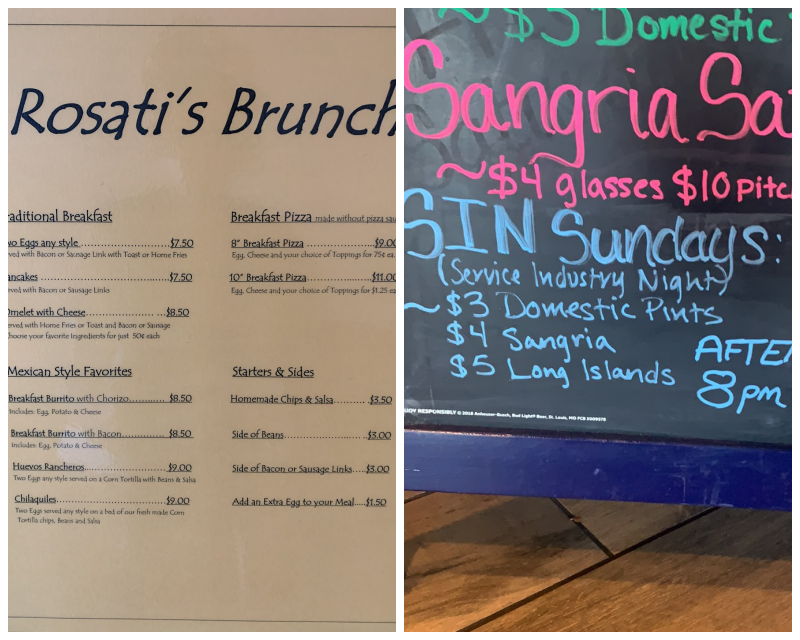 Rosati's Brunch
raditional Breakfast
wo Eggs any style ........................... $7.50
ved with Bacon or Sausage Link with Toast or Home Fries
ancakes ........................... $7.50
ved with Bacon or Sausage Links
Omelet with Cheese ................... $8.50
erved with Home Fries or Toast and Bacon or Sausage
hoose your favorite Ingredients for just 50¢ each
Mexican Style Favorites
Breakfast Burrito with Chorizo............. $8.50
Includes: Egg, Potato & Cheese
Breakfast Burrito with Bacon............... $8.50
Includes: Egg, Potato & Cheese
Huevos Rancheros...................... $9.00
Two Eggs any style served on a Corn Tortilla with Beans & Salsa
Chilaquiles............................. $9.00
Two Eggs served any style on a bed of our fresh made Corn
Tortilla chips, Beans and Salsa
Breakfast Pizza made without pizza sau
8" Breakfast Pizza ................. $9.00
Egg, Cheese and your choice of Toppings for 75¢ ea.
10" Breakfast Pizza................. $11.00
Egg, Cheese and your choice of Toppings for $1.25 ea
Starters & Sides
Homemade Chips & Salsa......... $3.50
Side of Beans ....................... $3.00
Side of Bacon or Sausage Links....$3.00
Add an Extra Egg to your Meal....$1.50
~ $3 Domestic
Sangria Sa
~$4 glasses $10 pitc
SIN Sundays:
(Service Industry Night)
~ $3 Domestic Pints
$4 Sangria
$5 Long Islands
AFTE
8pm
JOY RESPONSIBLY © 2018 Anheuser-Busch, Bud Light® Beer, St. Louis, MO